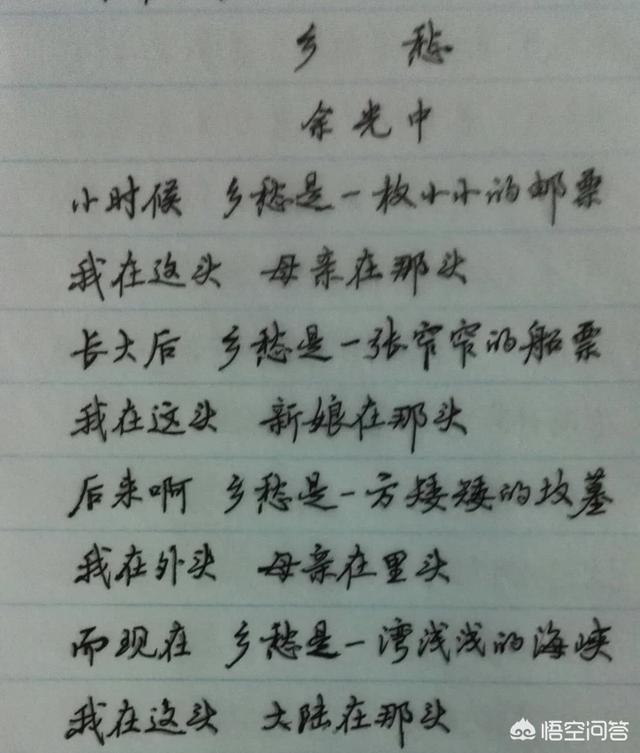 乡愁
余光中
小时候 乡愁是一枚小小的邮票
我在这头 母亲在那头
长大后 乡愁是一张窄窄的船票
我在这头 新娘在那头
后来啊 乡愁是一方矮矮的坟墓
我在外头 母亲在里头
而现在 乡愁是一湾浅浅的海峡
我在这头 大陆在那头
悟空问答